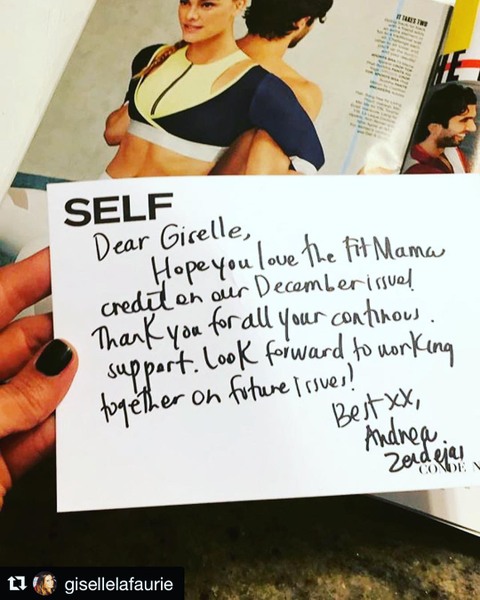 IT TAKES TWO
HE
SELF
Dear Giselle,
Hope you love the Fit Mama
credit on our December issue!
Thank you for all your continous.
support. Look forward to working
together on future issues!
Best xx,
Andrea.
CONDE N
gisellelafaurie